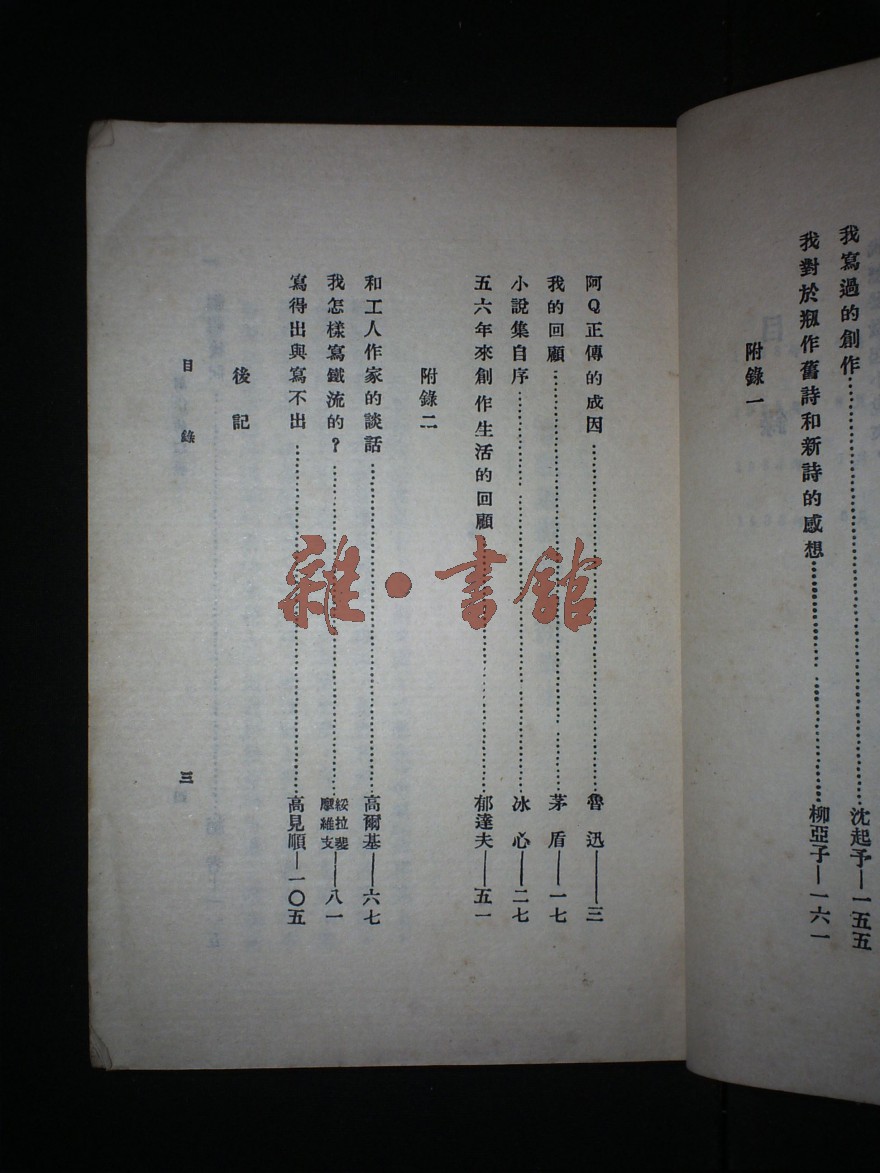 我寫過的創作……沈起予—一五五
我對於瓶作舊詩和新詩的感想……柳亞子—一六一
附錄一
阿Q正傳的成因……魯迅—三
我的回顧……茅盾—一七
小說集自序……冰心—二七
五六年來創作生活的回顧……郁達夫—五一
附錄二
和工人作家的談話……高爾基—六七
我怎樣寫鐵流的？……綏拉斐摩維支—八一
寫得出與寫不出……高見順—一〇五
後記
目錄
三
雜·書館